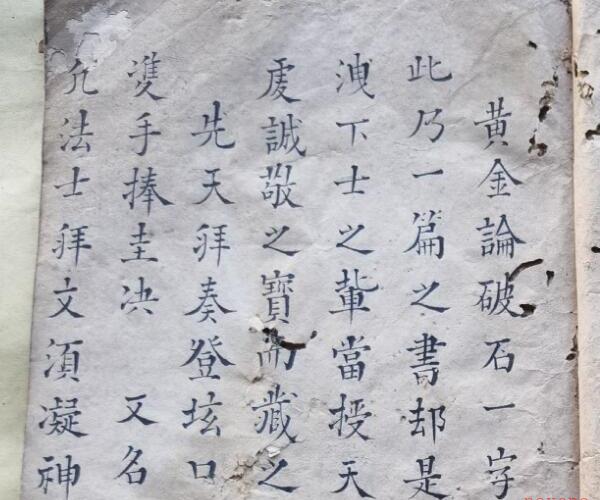 黃金論破石一字
此乃一篇之書却是
洩下士之軰當授天
虔誠敬之寶而藏之
先天拜奏登壇口
雙手捧圭决 又名
凢法士拜文須凝神